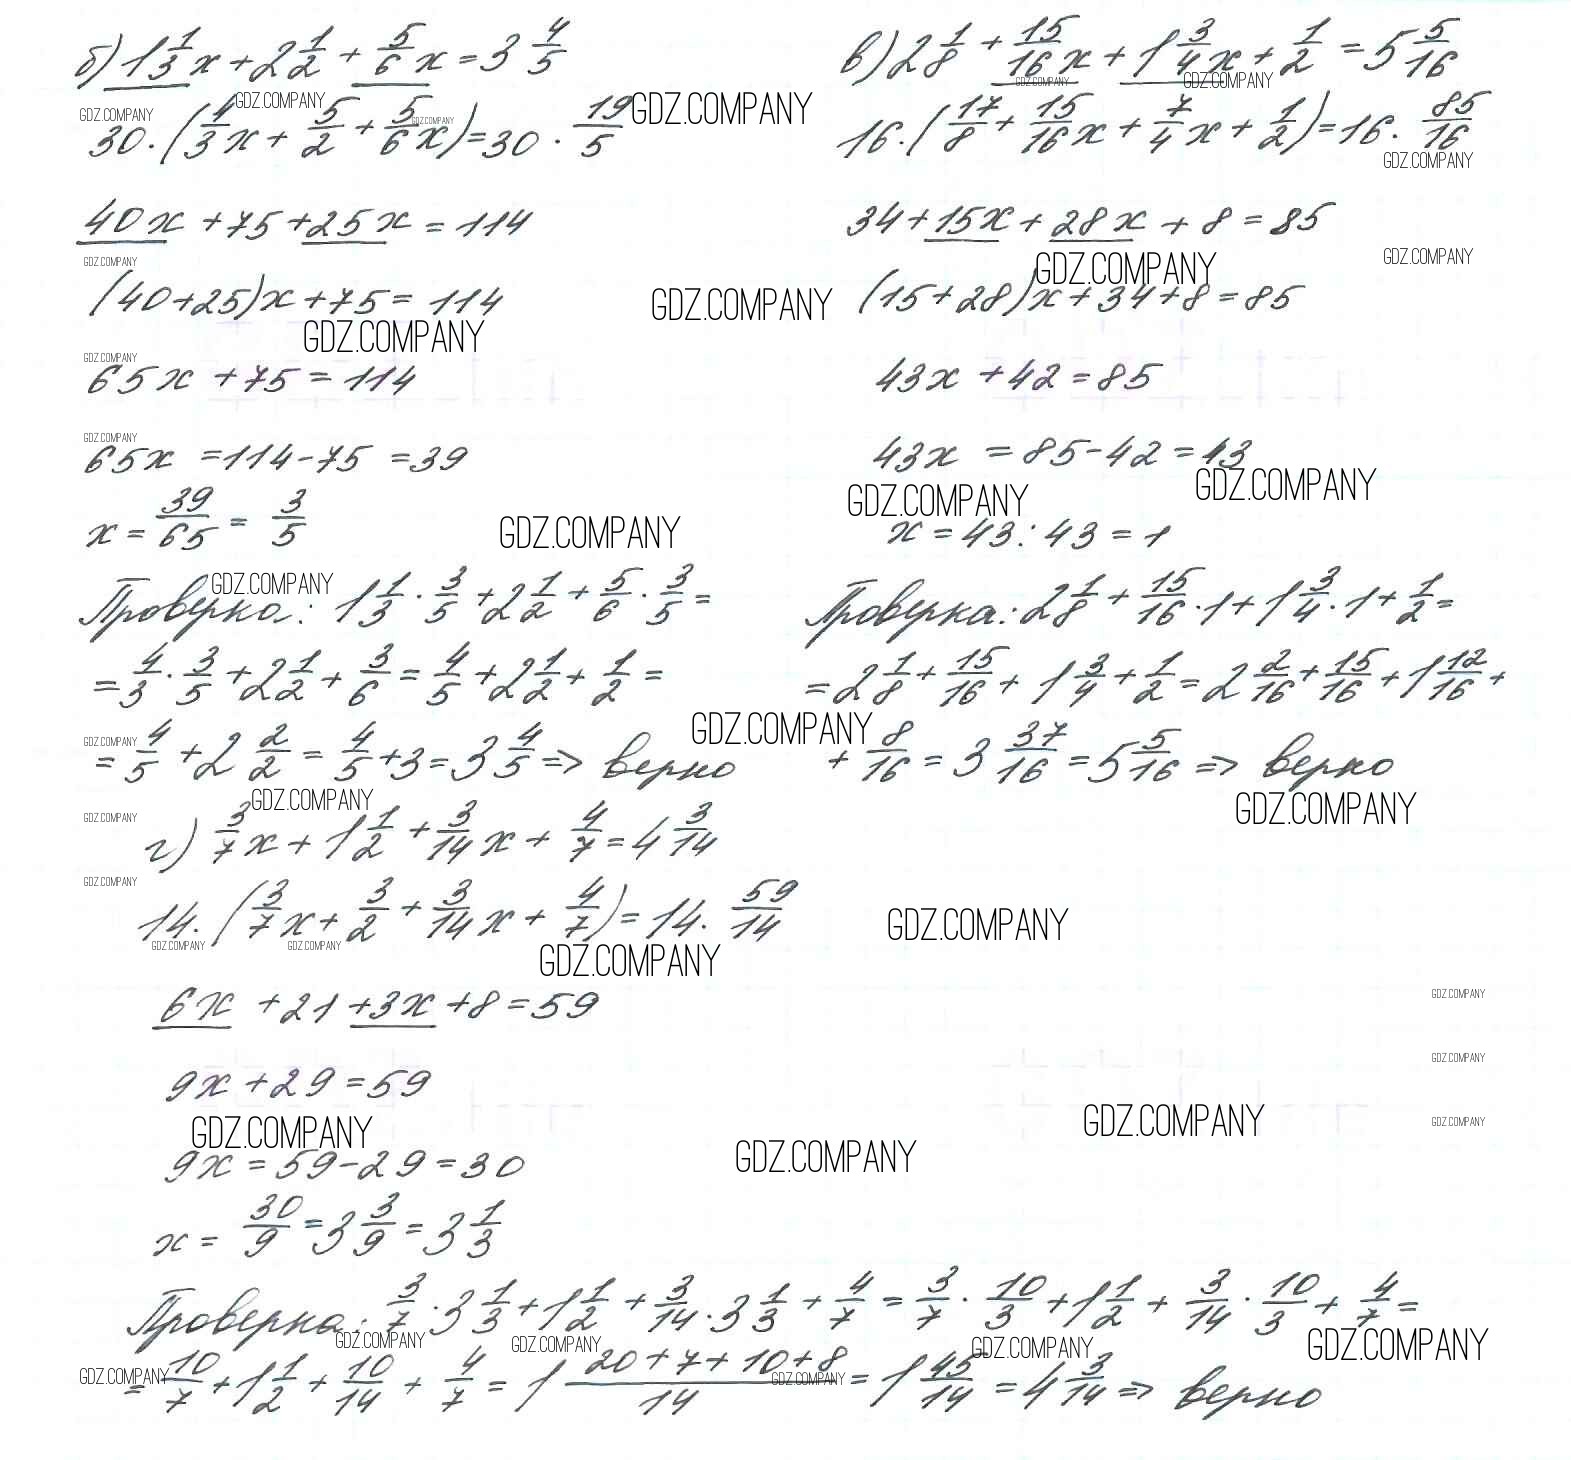 б) 1 1/3 x + 2 1/2 + 5/6 x = 3 4/5
30 · (4/3 x + 5/2 + 5/6 x) = 30 · 19/5
40x + 75 + 25x = 114
(40+25)x + 75 = 114
65x + 75 = 114
65x = 114 - 75 = 39
x = 39/65 = 3/5
Проверка: 1 1/3 · 3/5 + 2 1/2 + 5/6 · 3/5 =
= 4/3 · 3/5 + 2 1/2 + 3/6 = 4/5 + 2 1/2 + 1/2 =
= 4/5 + 2 2/2 = 4/5 + 3 = 3 4/5 => верно
в) 2 1/8 + 15/16 x + 1 3/4 x + 1/2 = 5 5/16
16 · (17/8 + 15/16 x + 7/4 x + 1/2) = 16 · 85/16
34 + 15x + 28x + 8 = 85
(15+28)x + 34 + 8 = 85
43x + 42 = 85
43x = 85 - 42 = 43
x = 43 : 43 = 1
Проверка: 2 1/8 + 15/16 · 1 + 1 3/4 · 1 + 1/2 =
= 2 1/8 + 15/16 + 1 3/4 + 1/2 = 2 2/16 + 15/16 + 1 12/16 +
+ 8/16 = 3 37/16 = 5 5/16 => верно
г) 3/7 x + 1 1/2 + 3/14 x + 4/7 = 4 3/14
14 · (3/7 x + 3/2 + 3/14 x + 4/7) = 14 · 59/14
6x + 21 + 3x + 8 = 59
9x + 29 = 59
9x = 59 - 29 = 30
x = 30/9 = 3 3/9 = 3 1/3
Проверка: 3/7 · 3 1/3 + 1 1/2 + 3/14 · 3 1/3 + 4/7 = 3/7 · 10/3 + 1 1/2 + 3/14 · 10/3 + 4/7 =
= 10/7 + 1 1/2 + 10/14 + 4/7 = 1 (20+7+10+8)/14 = 1 45/14 = 4 3/14 => верно
GDZ.COMPANY